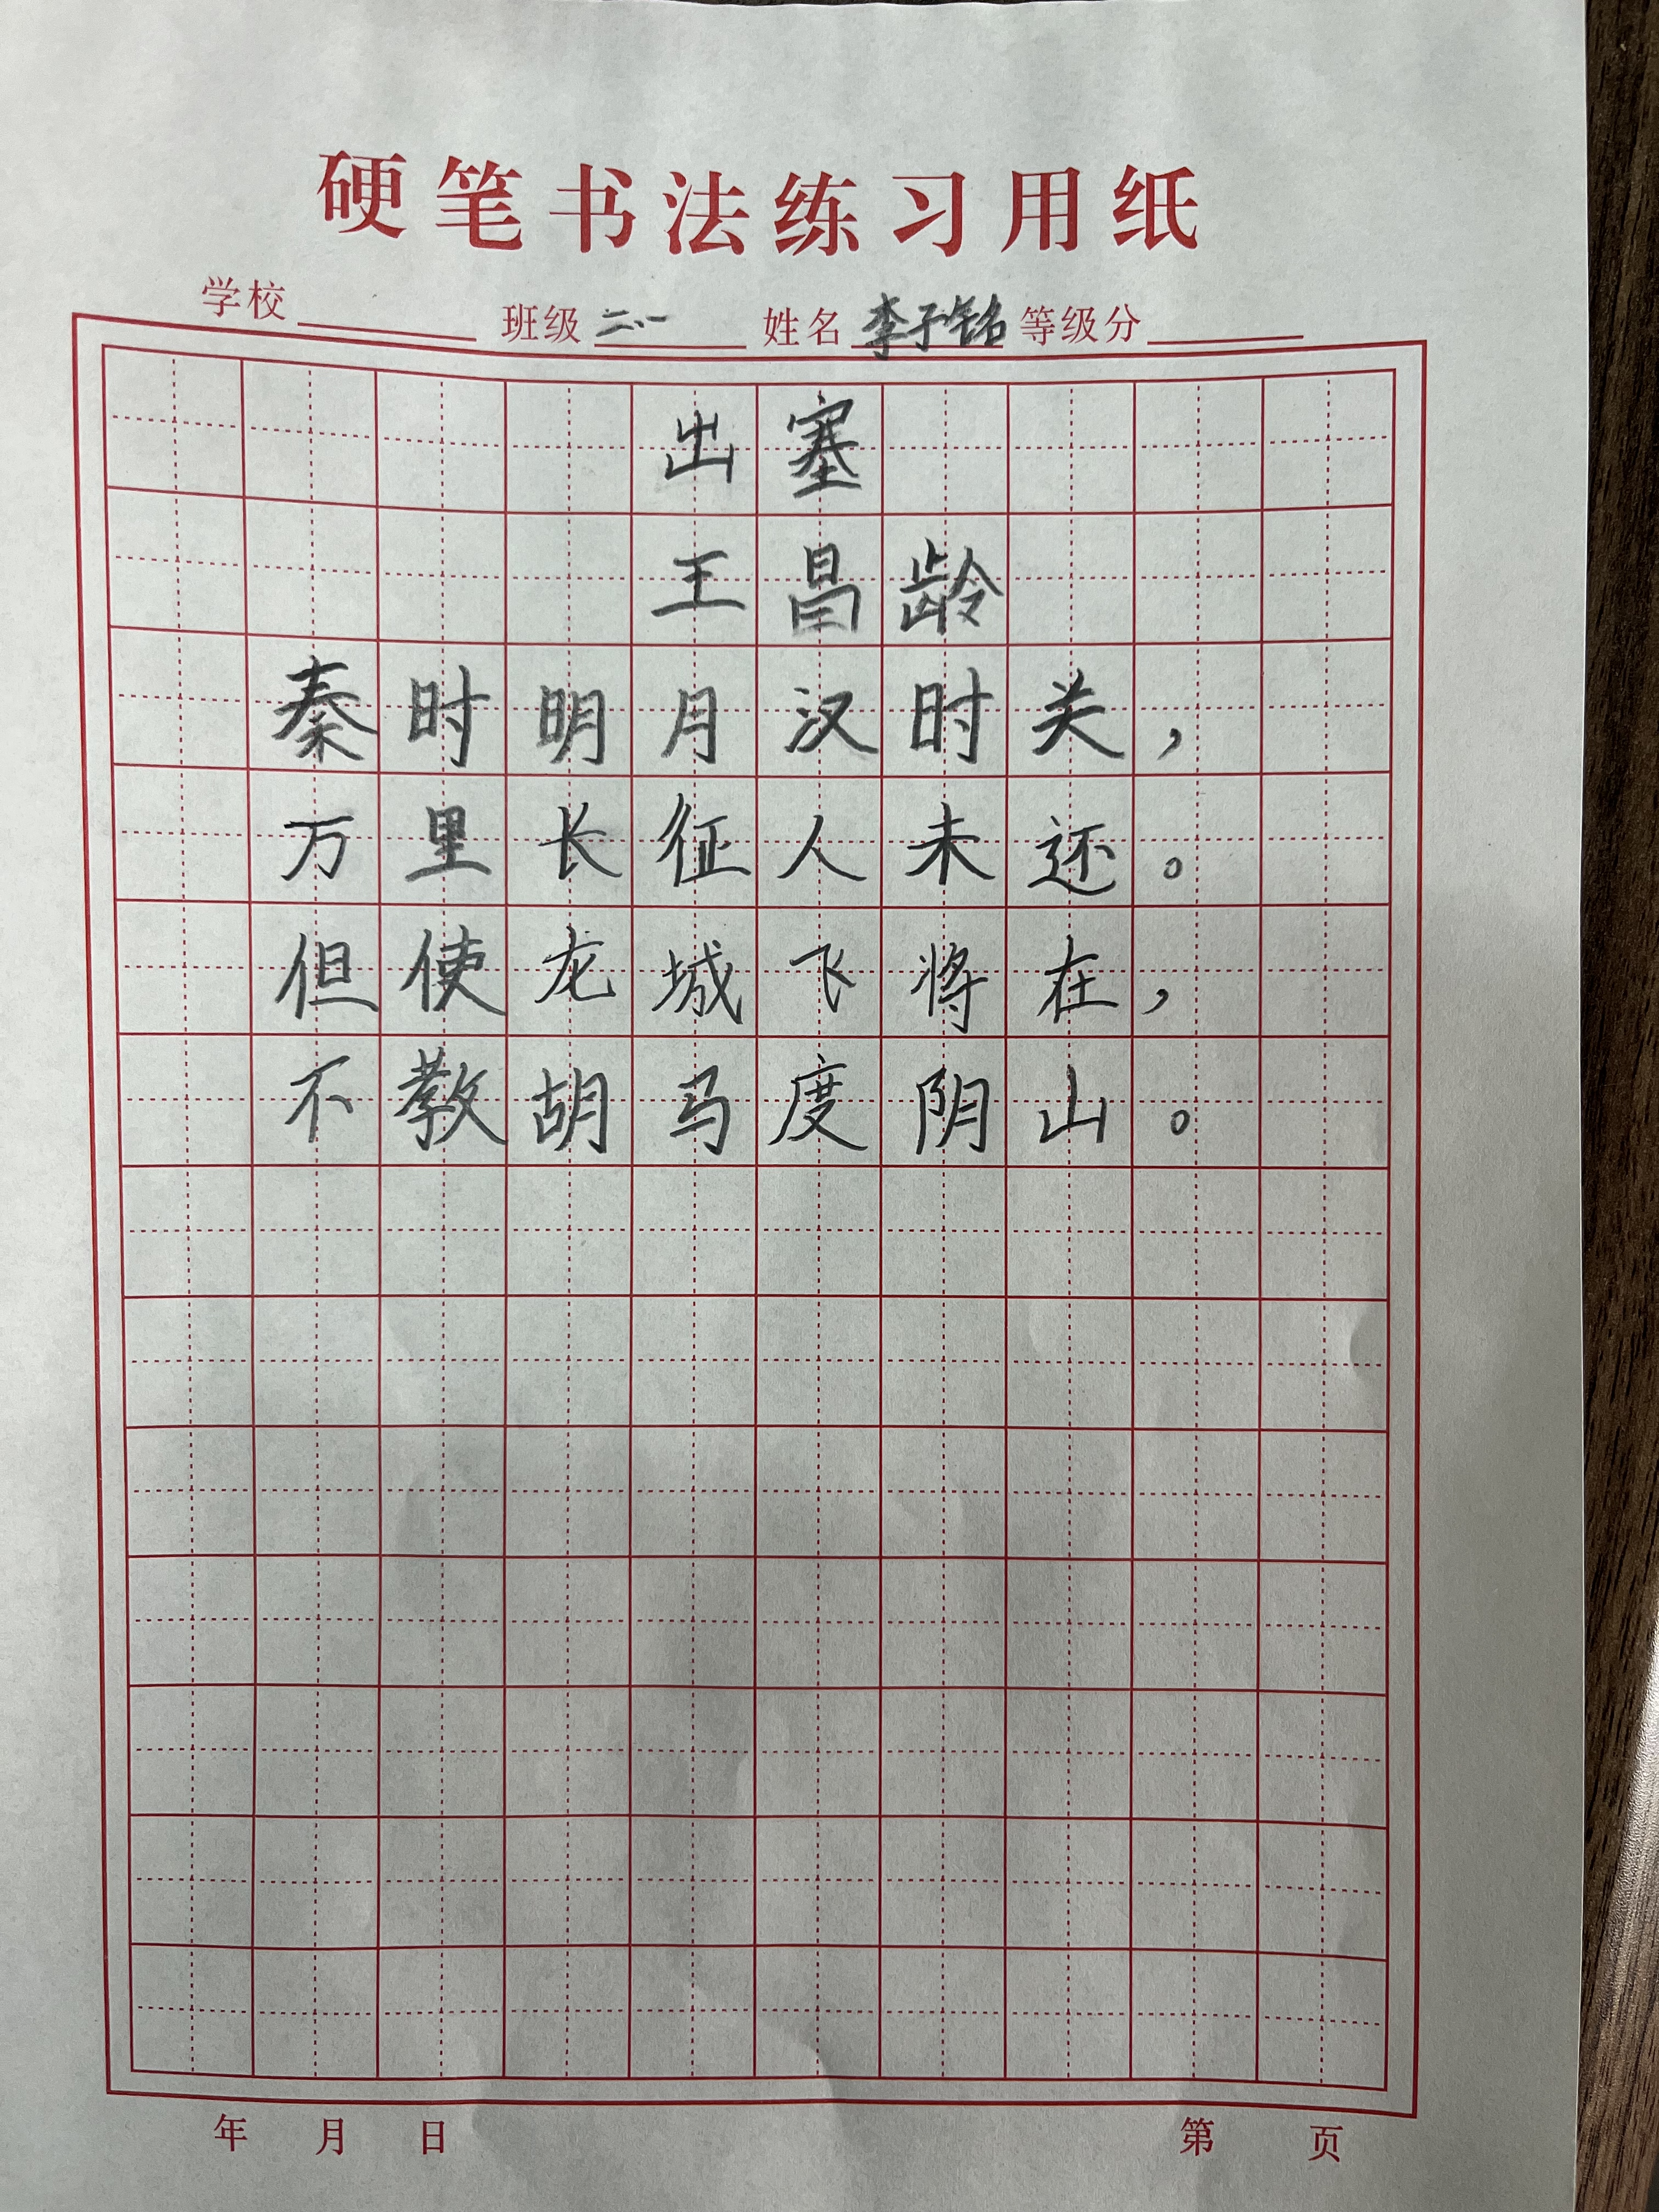 硬笔书法练习用纸
学校 班级 二、一 姓名 李子铭 等级分
出塞
王昌龄
秦时明月汉时关，
万里长征人未还。
但使龙城飞将在，
不教胡马度阴山。
年 月 日 第 页